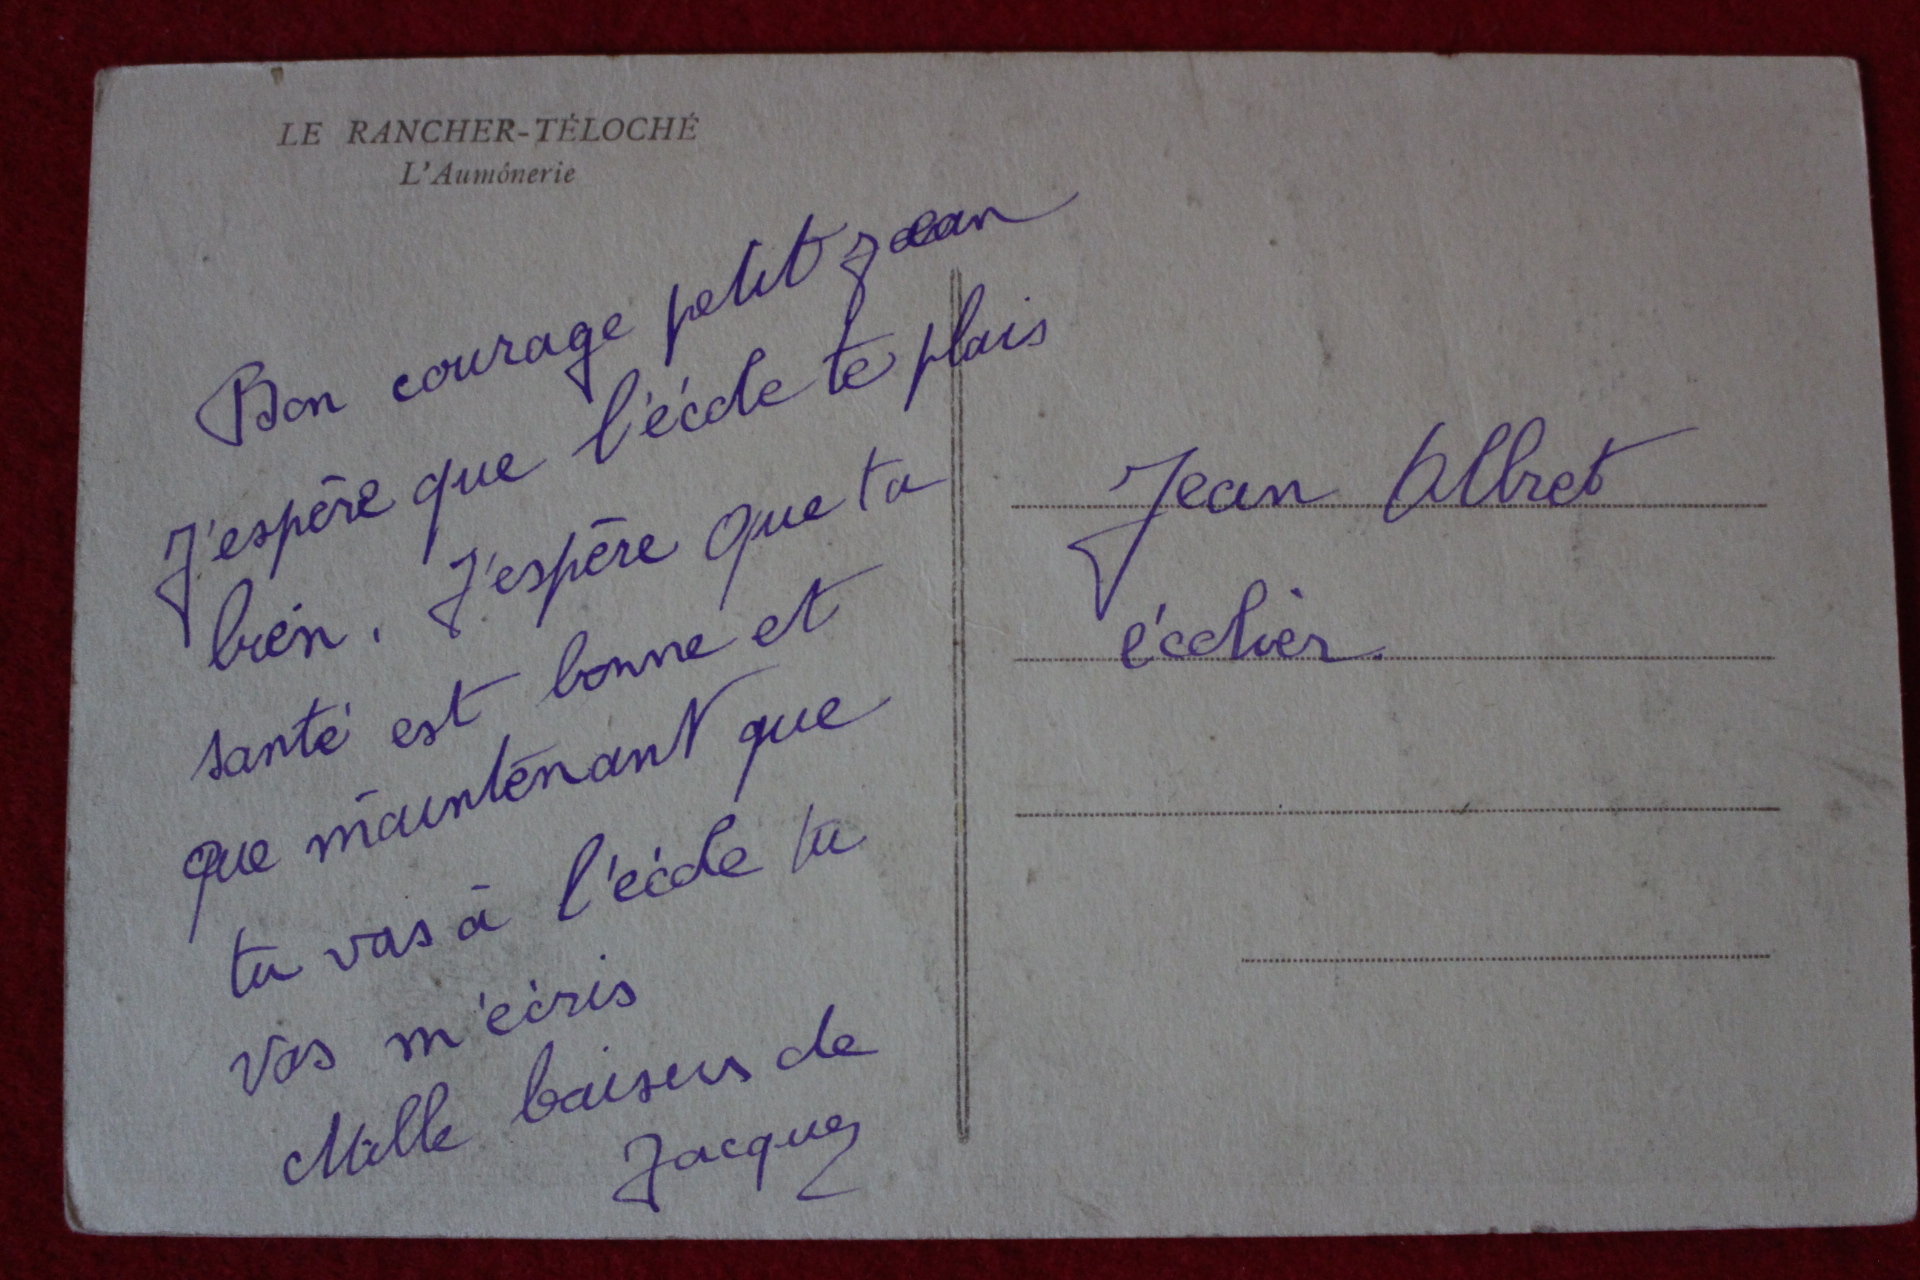 LE RANCHER-TÉLOCHÉ
L'Aumônerie
Bon courage petit jean
J'espère que l'école te plais
bien. J'espère que ta
santé est bonne et
que maintenant que
tu vas à l'école tu
vas m'écris
Mille baisers de
Jacques
Jean Albret
écolier.